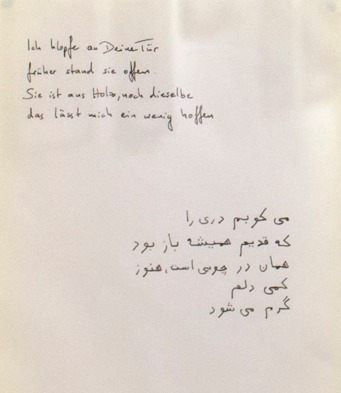 Ich klopfe an Deine Tür
früher stand sie offen.
Sie ist aus Holz, noch dieselbe
das lässt mich ein wenig hoffen
می کوبم دری را
که قدیم همیشه باز بود
همان در چوبی است، هنوز
کمی دلم
گرم می شود